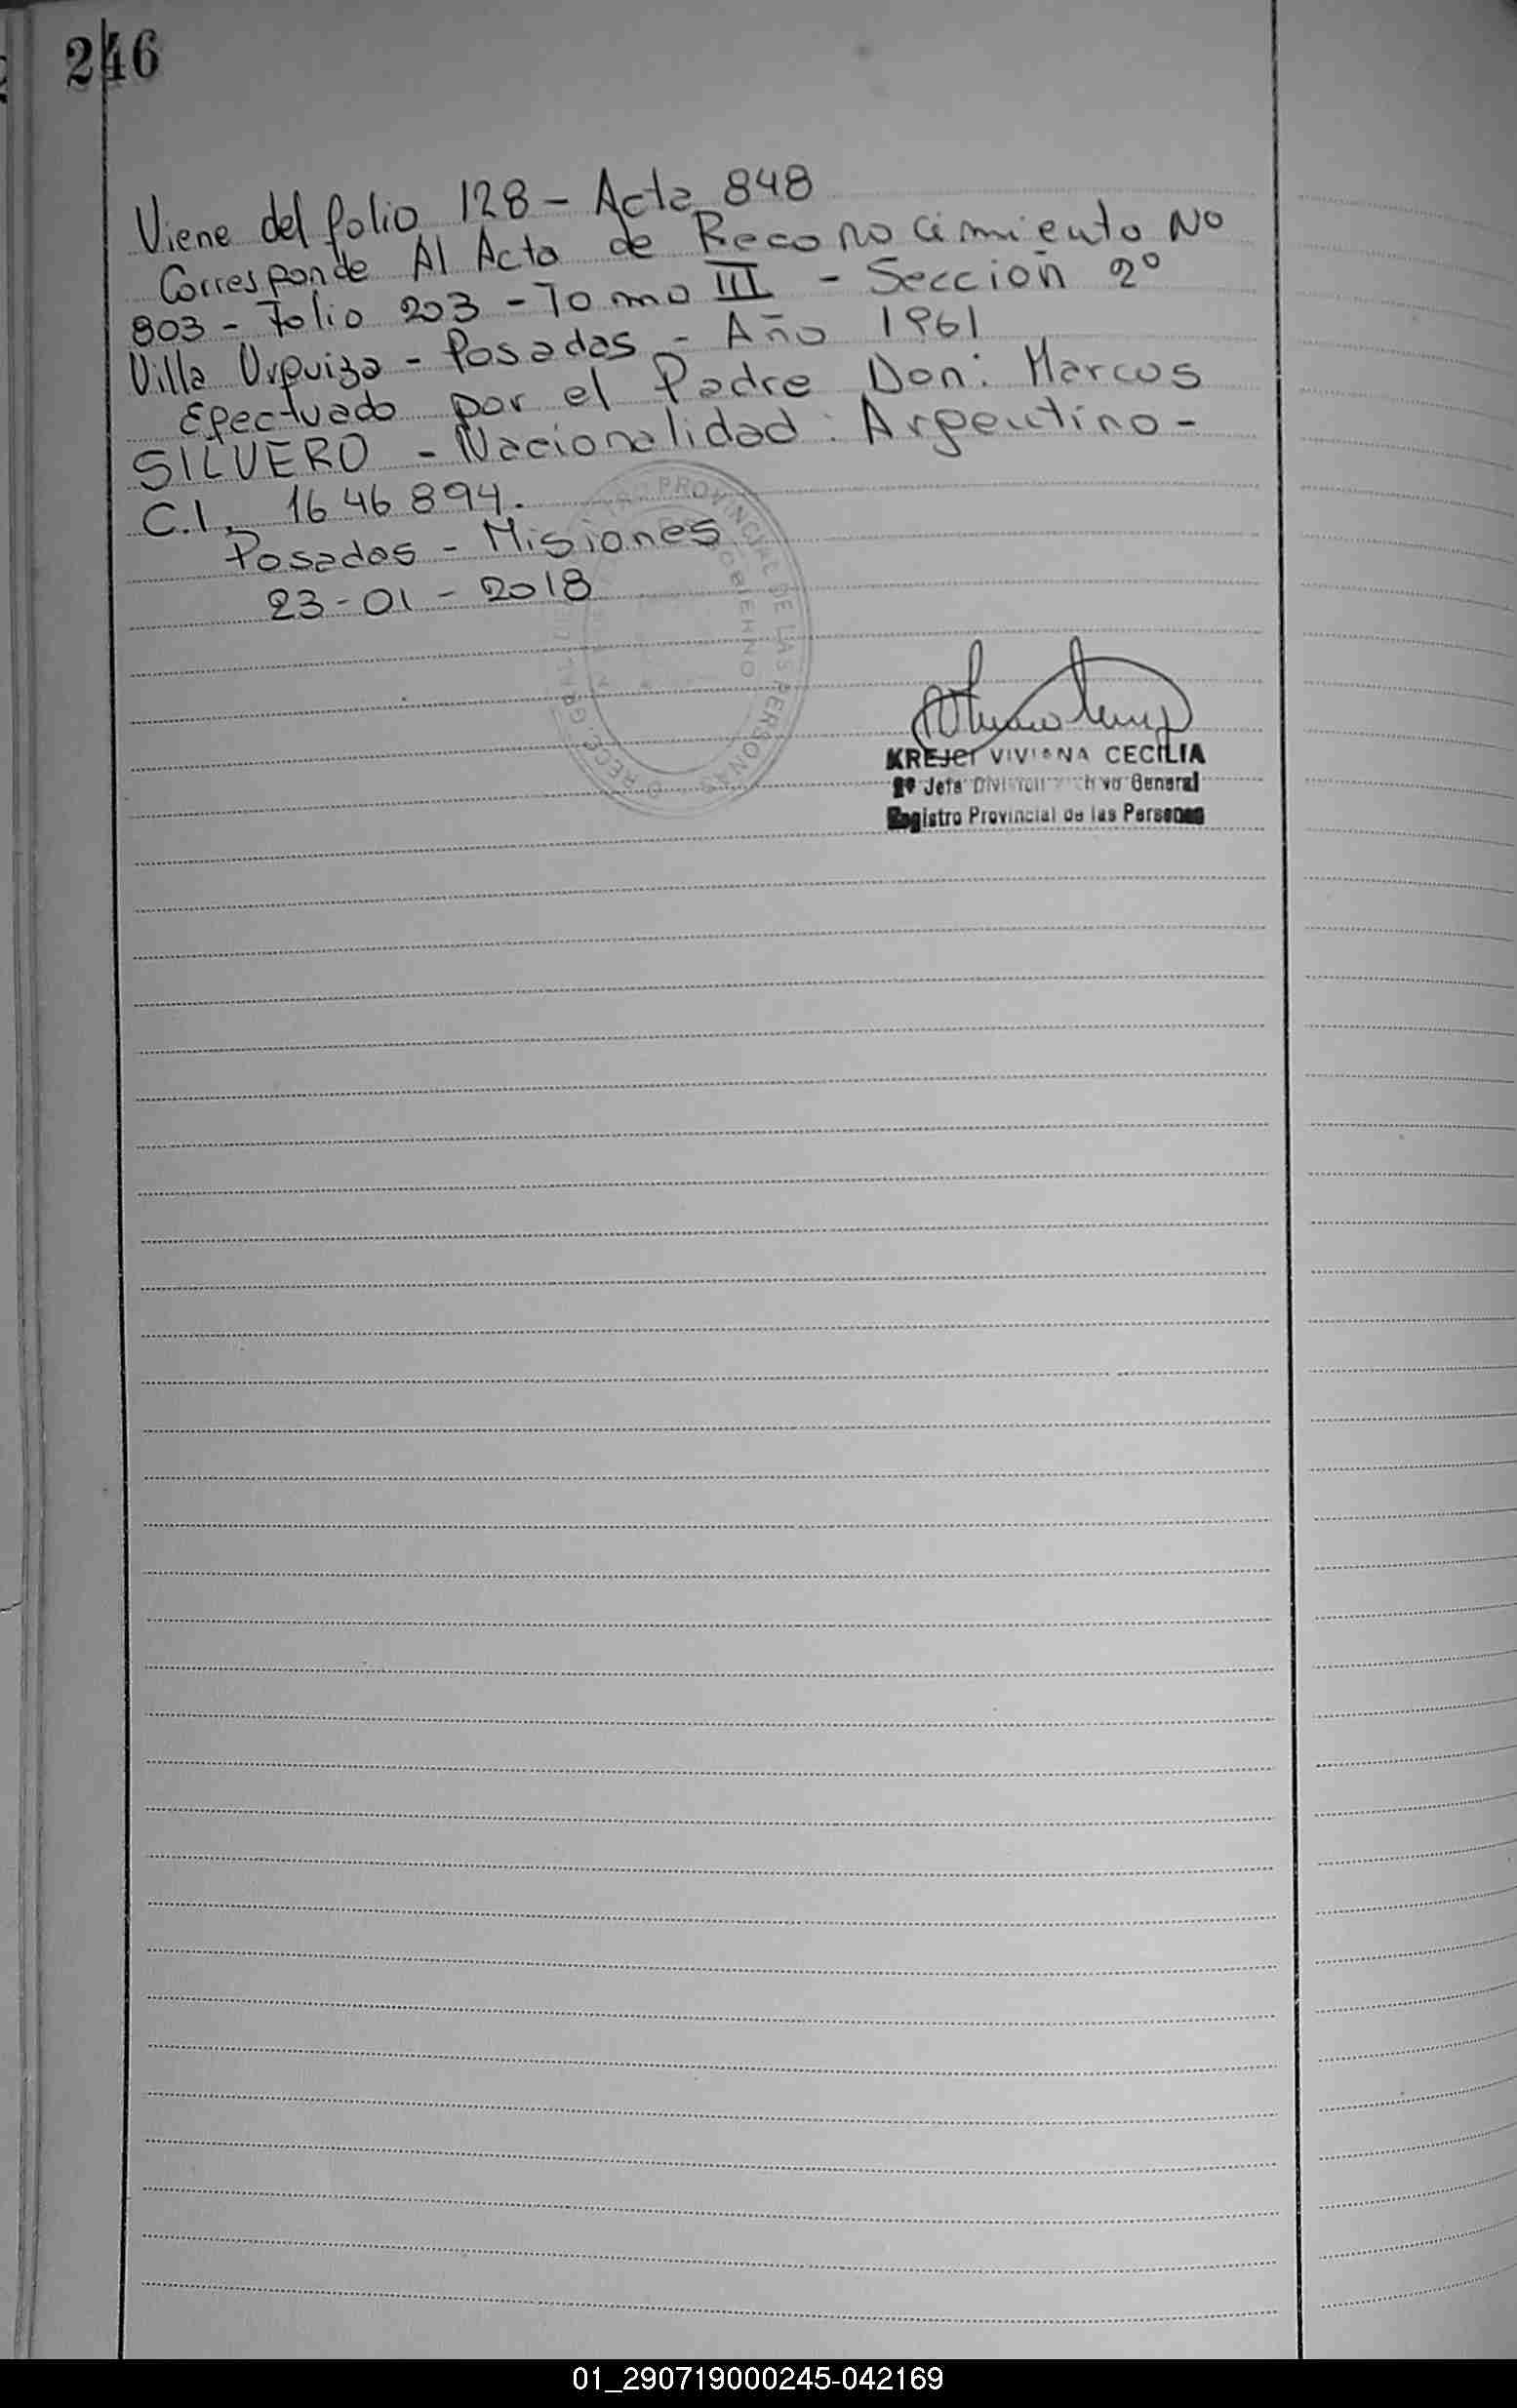 246
Viene del folio 128 - Acta 848
Corresponde Al Acta de Reconocimiento Nº
803 - Folio 203 - Tomo III - Sección 2º
Villa Urquiza - Posadas - Año 1961
Efectuado por el Padre Don: Marcos
SILVERO - Nacionalidad: Argentino -
C.I. 1646894.
Posadas - Misiones
23-01-2018
PROVINCIAL DE LAS PERSONAS
GOBIERNO
KREJCI VIVIANA CECILIA
2º Jefa División Archivo General
Registro Provincial de las Personas
01_290719000245-042169